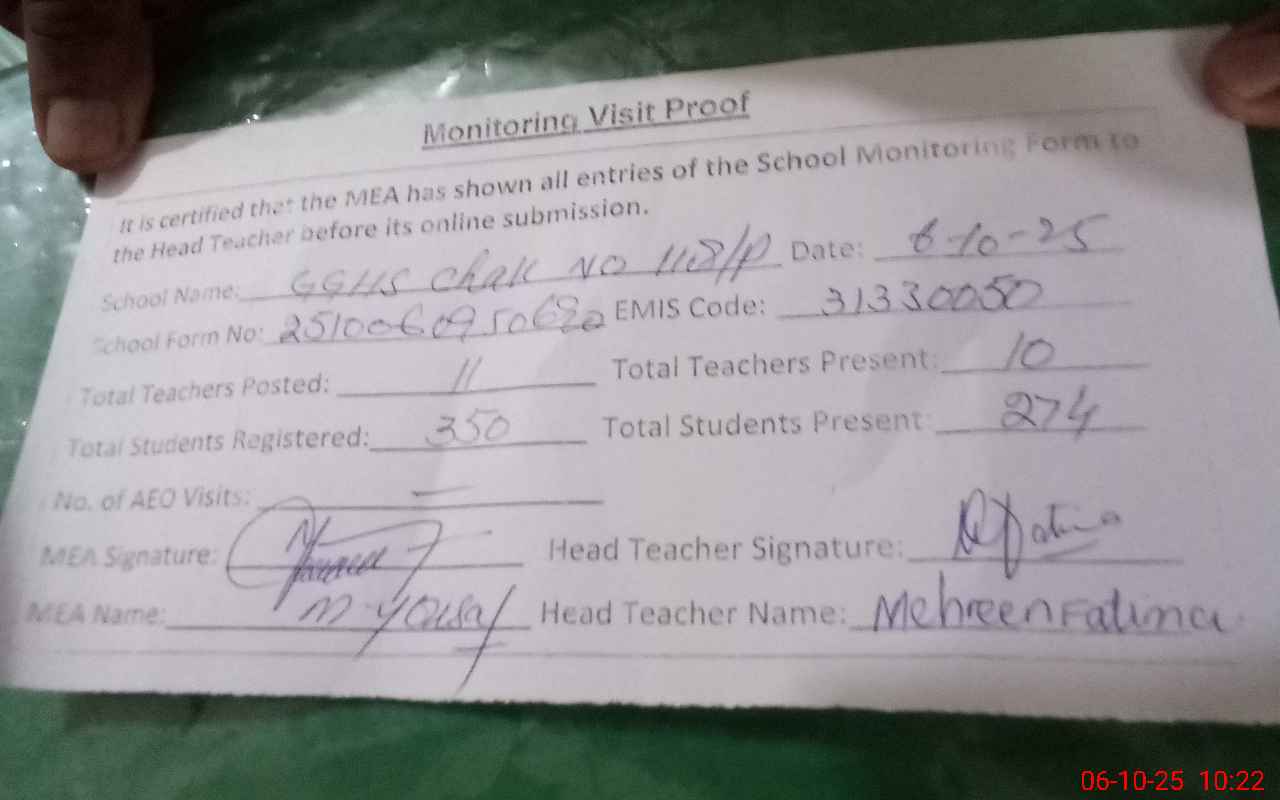 Monitoring Visit Proof
It is certified that the MEA has shown all entries of the School Monitoring Form to
the Head Teacher before its online submission.
School Name: GGHS Chak NO 118/P Date: 6-10-25
School Form No: EMIS Code: 31330050
Total Teachers Posted: 11 Total Teachers Present: 10
Total Students Registered: 350 Total Students Present: 274
No. of AEO Visits: —
MEA Signature: Head Teacher Signature:
MEA Name: M-Yousaf Head Teacher Name: Mehreen Fatima
06-10-25 10:22